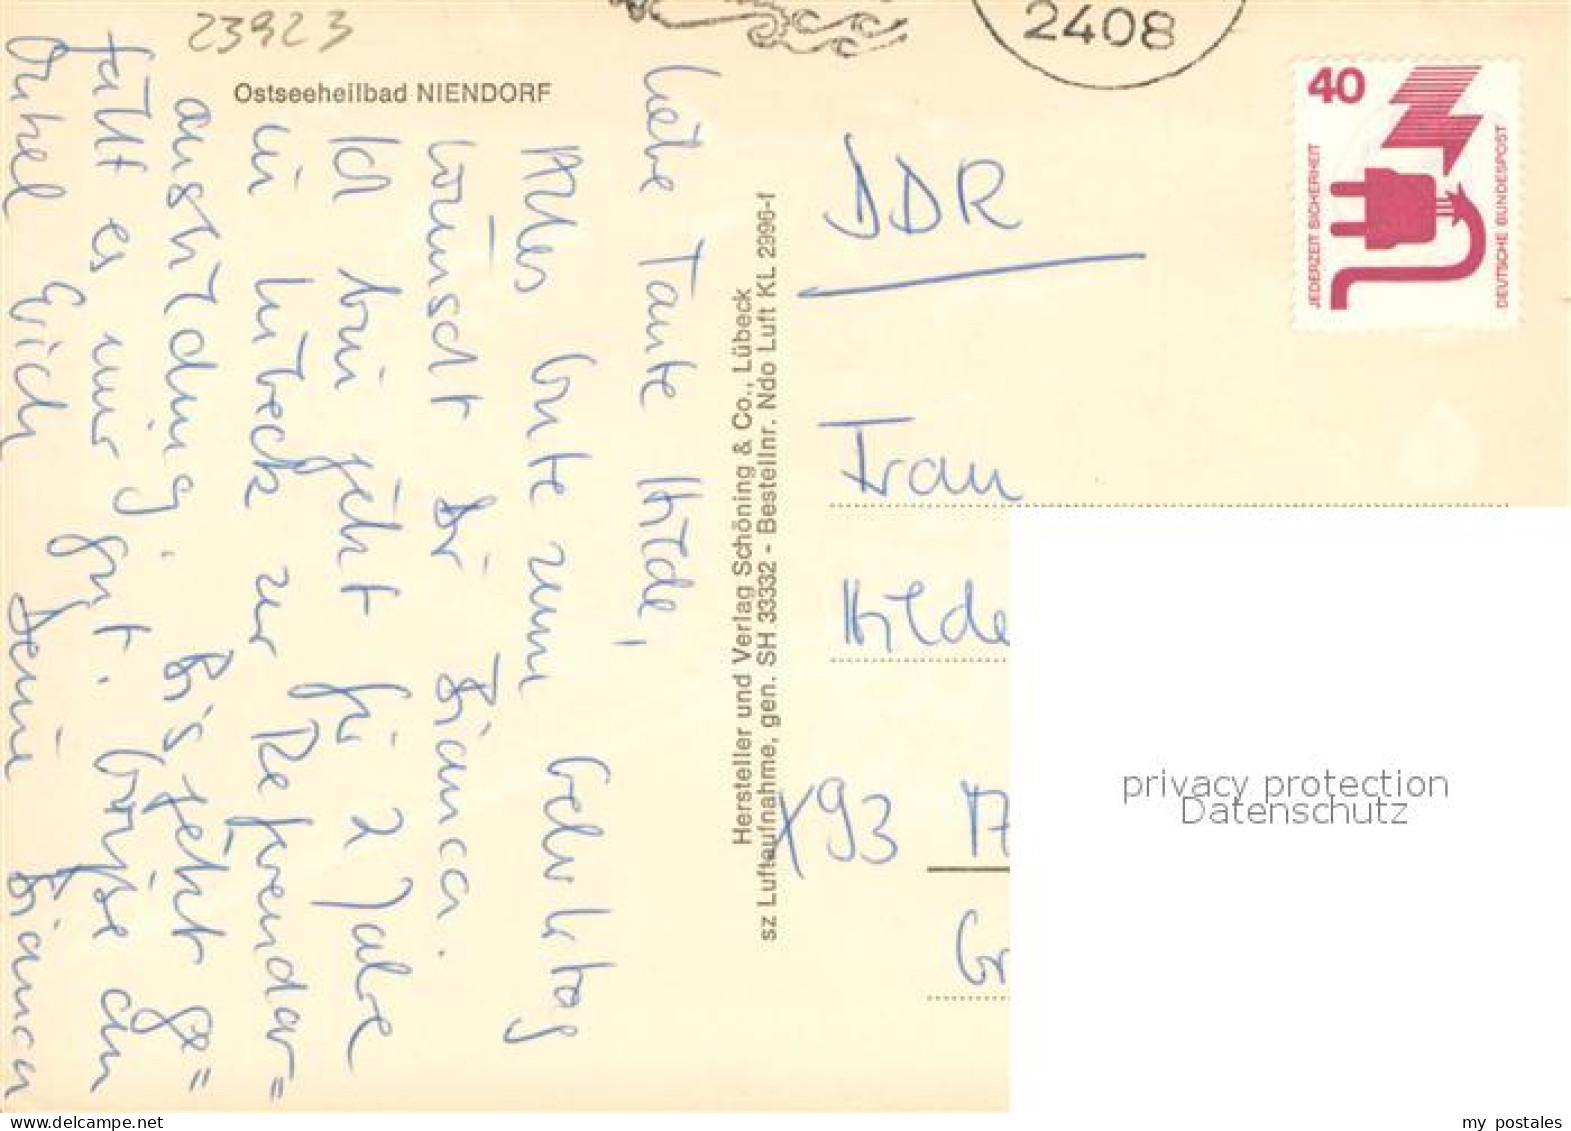 23923
Ostseeheilbad NIENDORF
Liebe Tante Hilde,
Alles Gute zum Geburtstag
wünscht Dir Bianca.
Ich bin jetzt für 2 Jahre
in Lübeck zur Referendar=
ausbildung. Bis jetzt ge=
fällt es mir gut. Grüße an
Onkel Erich Deine Bianca
Hersteller und Verlag Schöning & Co., Lübeck
sz Luftaufnahme, gen. SH 33332 - Bestellnr. Ndo Luft KL 2996-f
2408
40
JEDERZEIT SICHERHEIT
DEUTSCHE BUNDESPOST
DDR
Frau
Hilde
X93
Gr
privacy protection
Datenschutz
www.delcampe.net
my_postales